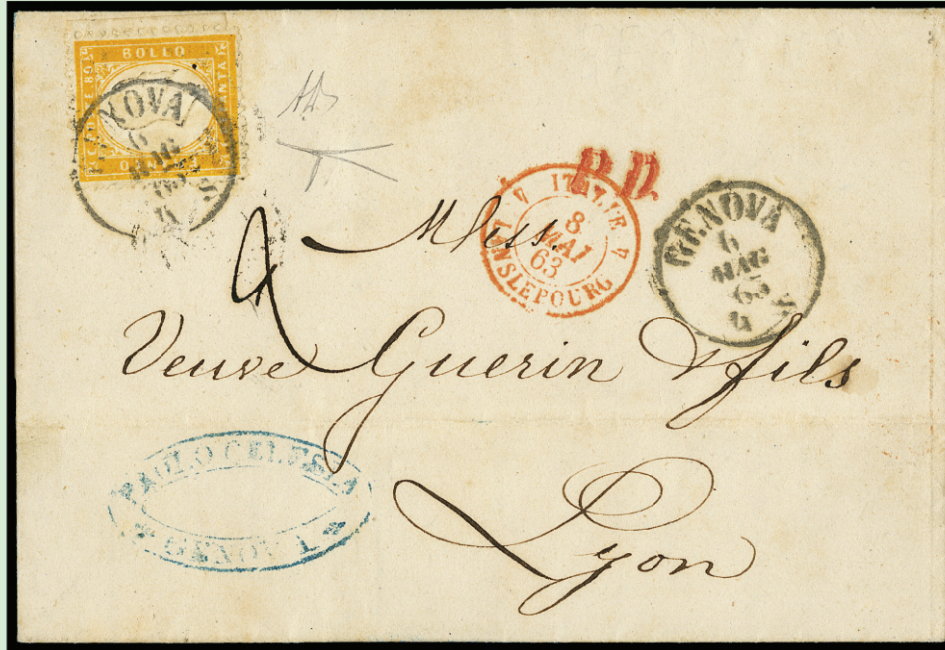 BOLLO
GENOVA
6
MAG
63
P.D.
V ITALIE V
8
MAI
63
LANSLEBOURG
GENOVA
6
MAG
63
4 S
Mess.
Veuve Guerin & fils
Lyon
PAOLO CELESIA
GENOVA